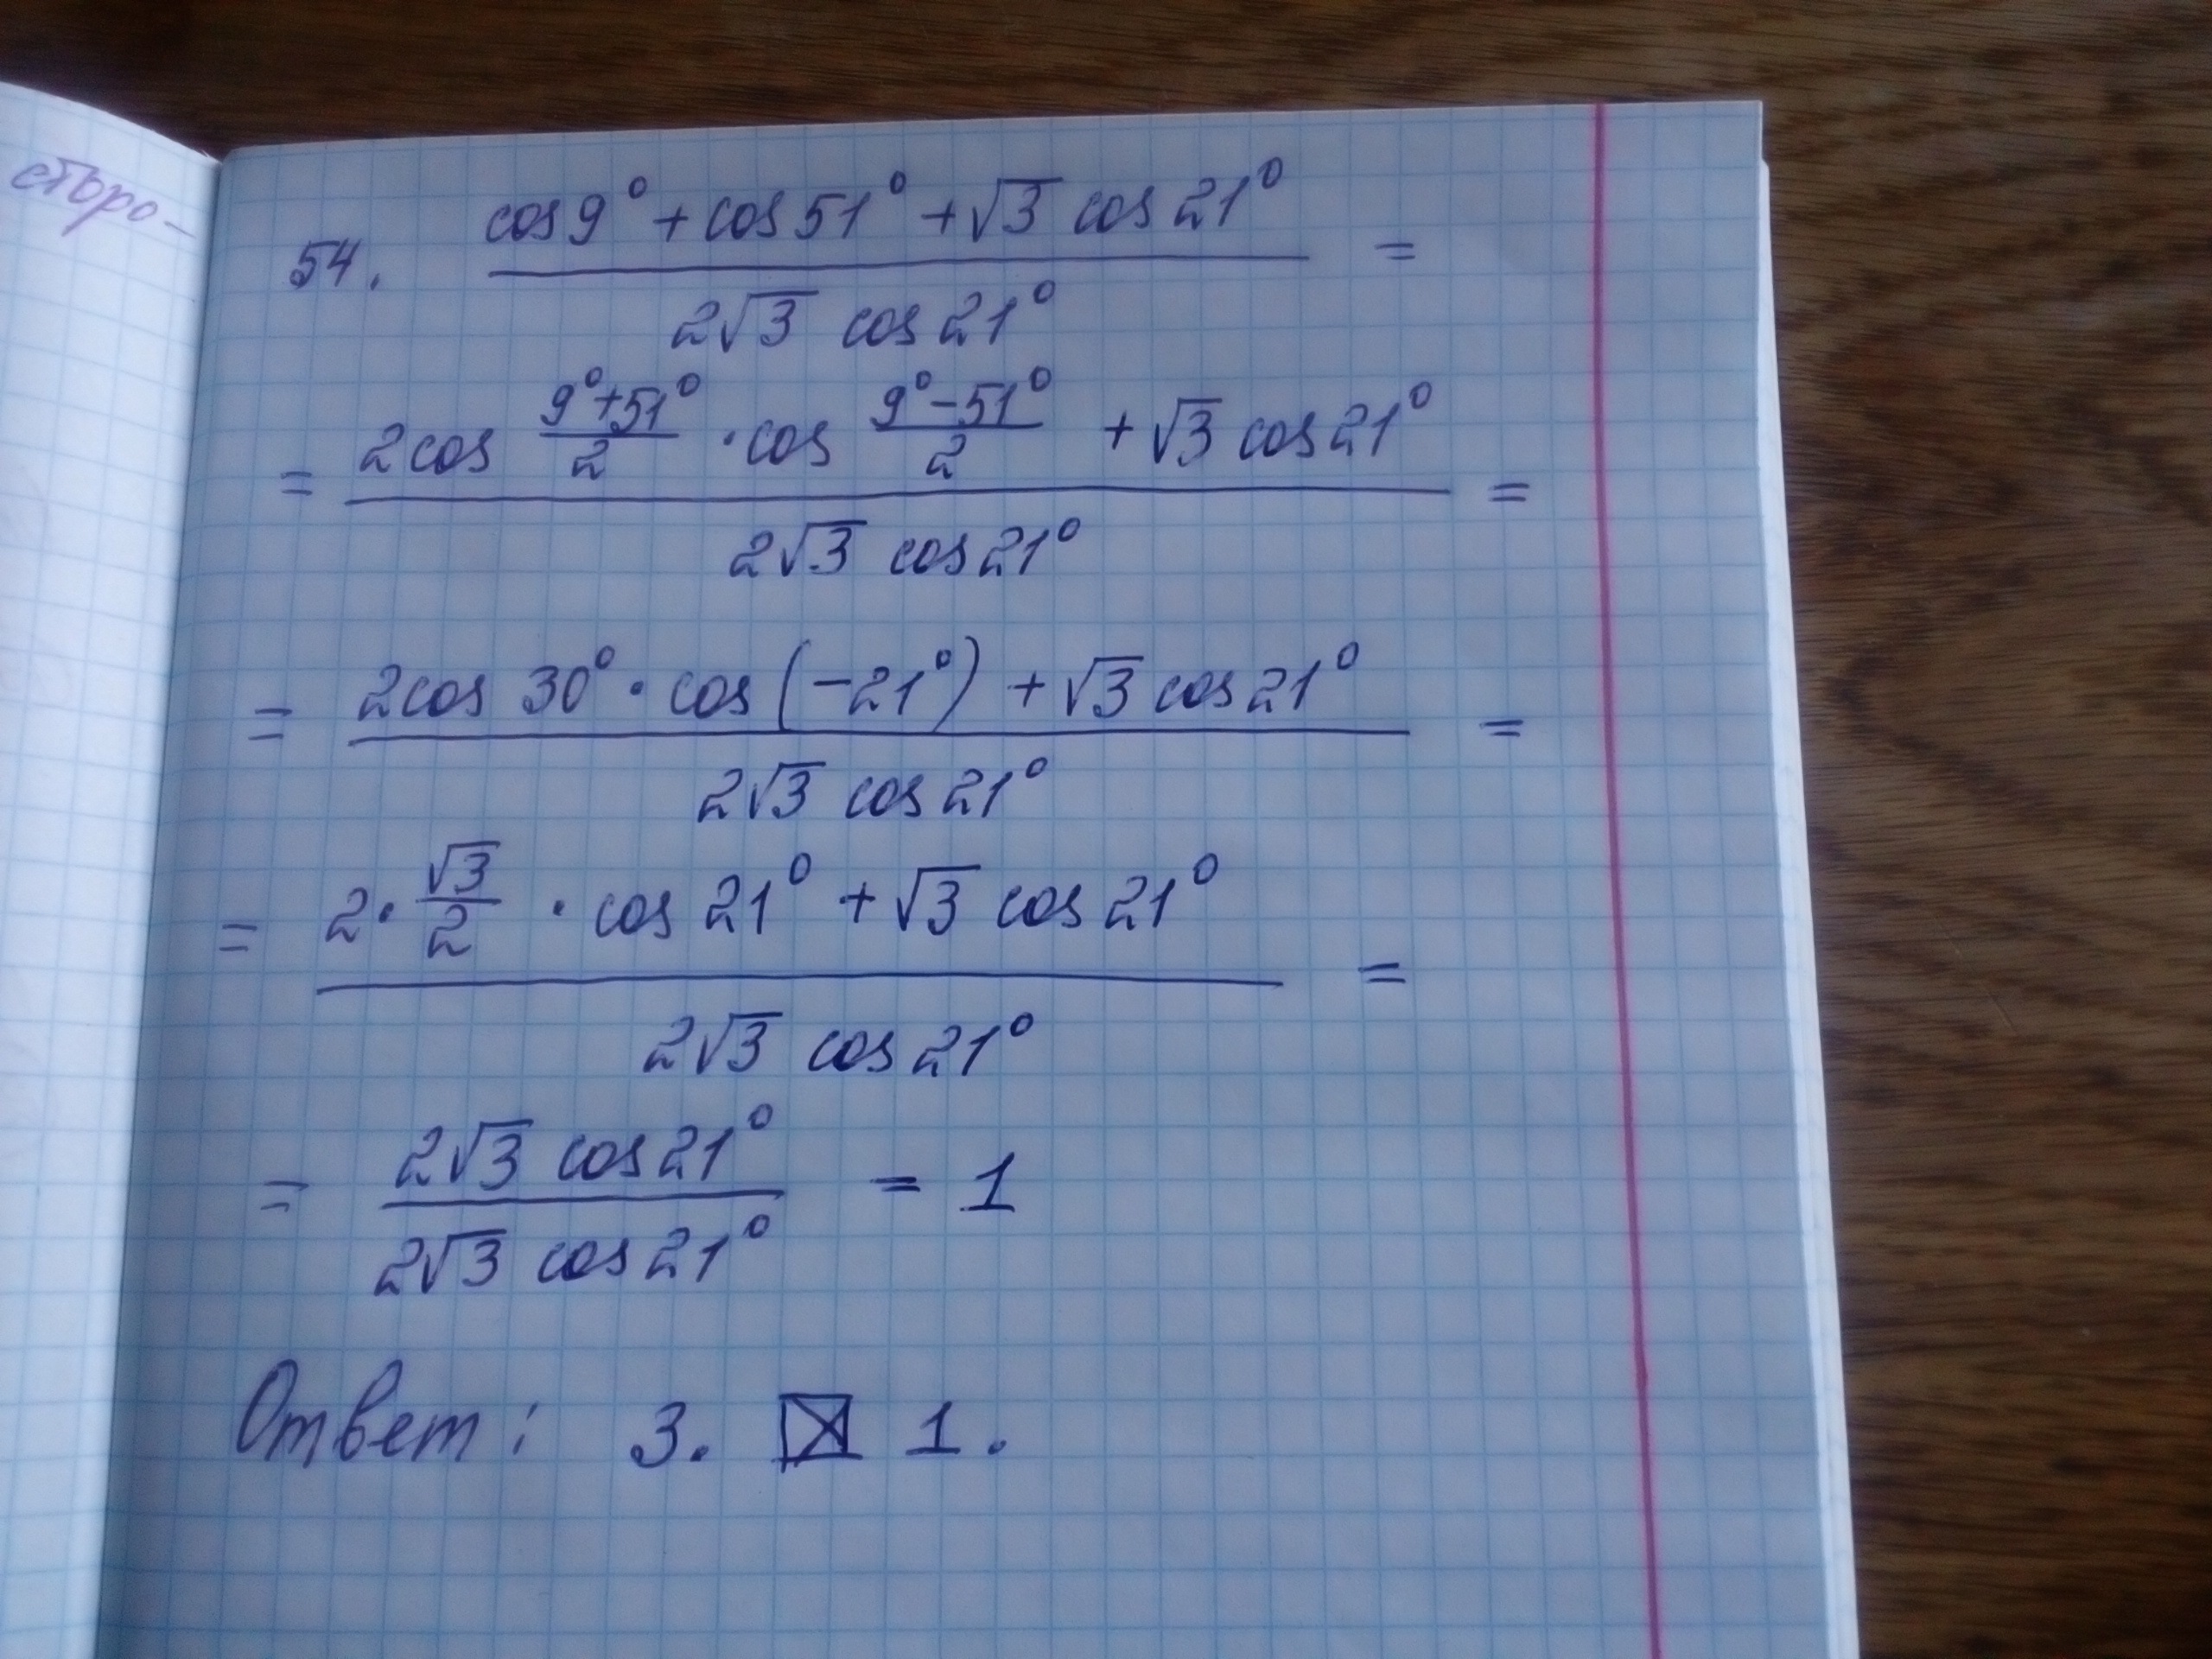 сторо-
54. (cos 9° + cos 51° + √3 cos 21°) / (2√3 cos 21°) =
= (2cos (9°+51°)/2 · cos (9°−51°)/2 + √3 cos 21°) / (2√3 cos 21°) =
= (2cos 30° · cos (−21°) + √3 cos 21°) / (2√3 cos 21°) =
= (2 · √3/2 · cos 21° + √3 cos 21°) / (2√3 cos 21°) =
= (2√3 cos 21°) / (2√3 cos 21°) = 1
Ответ: 3. ☒ 1.